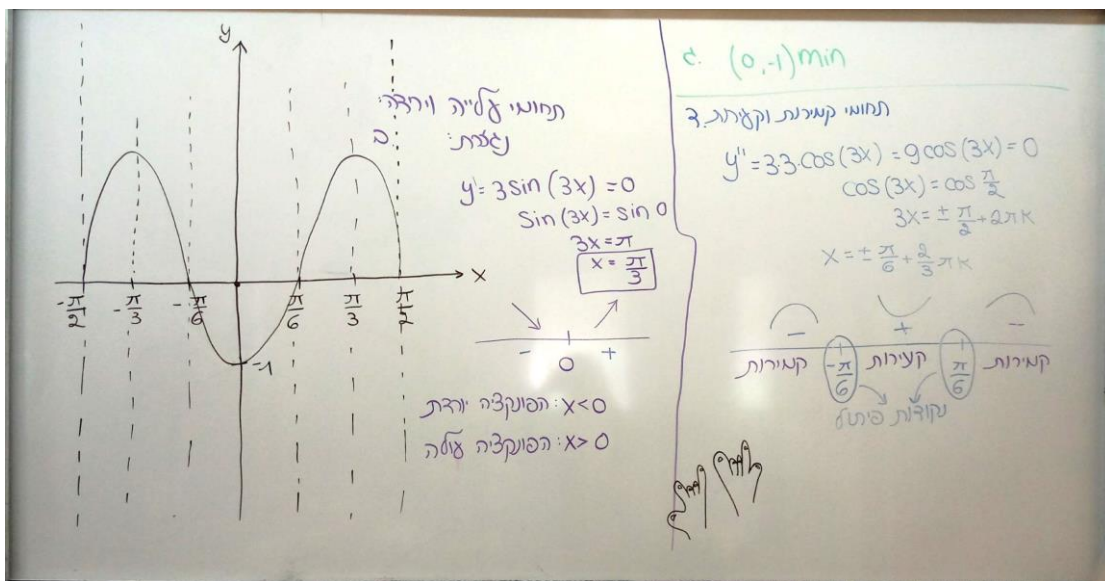 y
x
-π/2
-π/3
-π/6
π/6
π/3
π/2
-1
תחומי עלייה וירידה:
ב. נגזרת:
y' = 3sin(3x) = 0
sin(3x) = sin 0
3x = π
x = π/3
- 0 +
x<0 : הפונקציה יורדת
x>0 : הפונקציה עולה
ג. (0,-1) min
ד. תחומי קמירות וקעירות
y'' = 3·3·cos(3x) = 9cos(3x) = 0
cos(3x) = cos π/2
3x = ± π/2 + 2πk
x = ± π/6 + 2/3 πk
- + -
קמירות -π/6 קעירות π/6 קמירות
נקודות פיתול